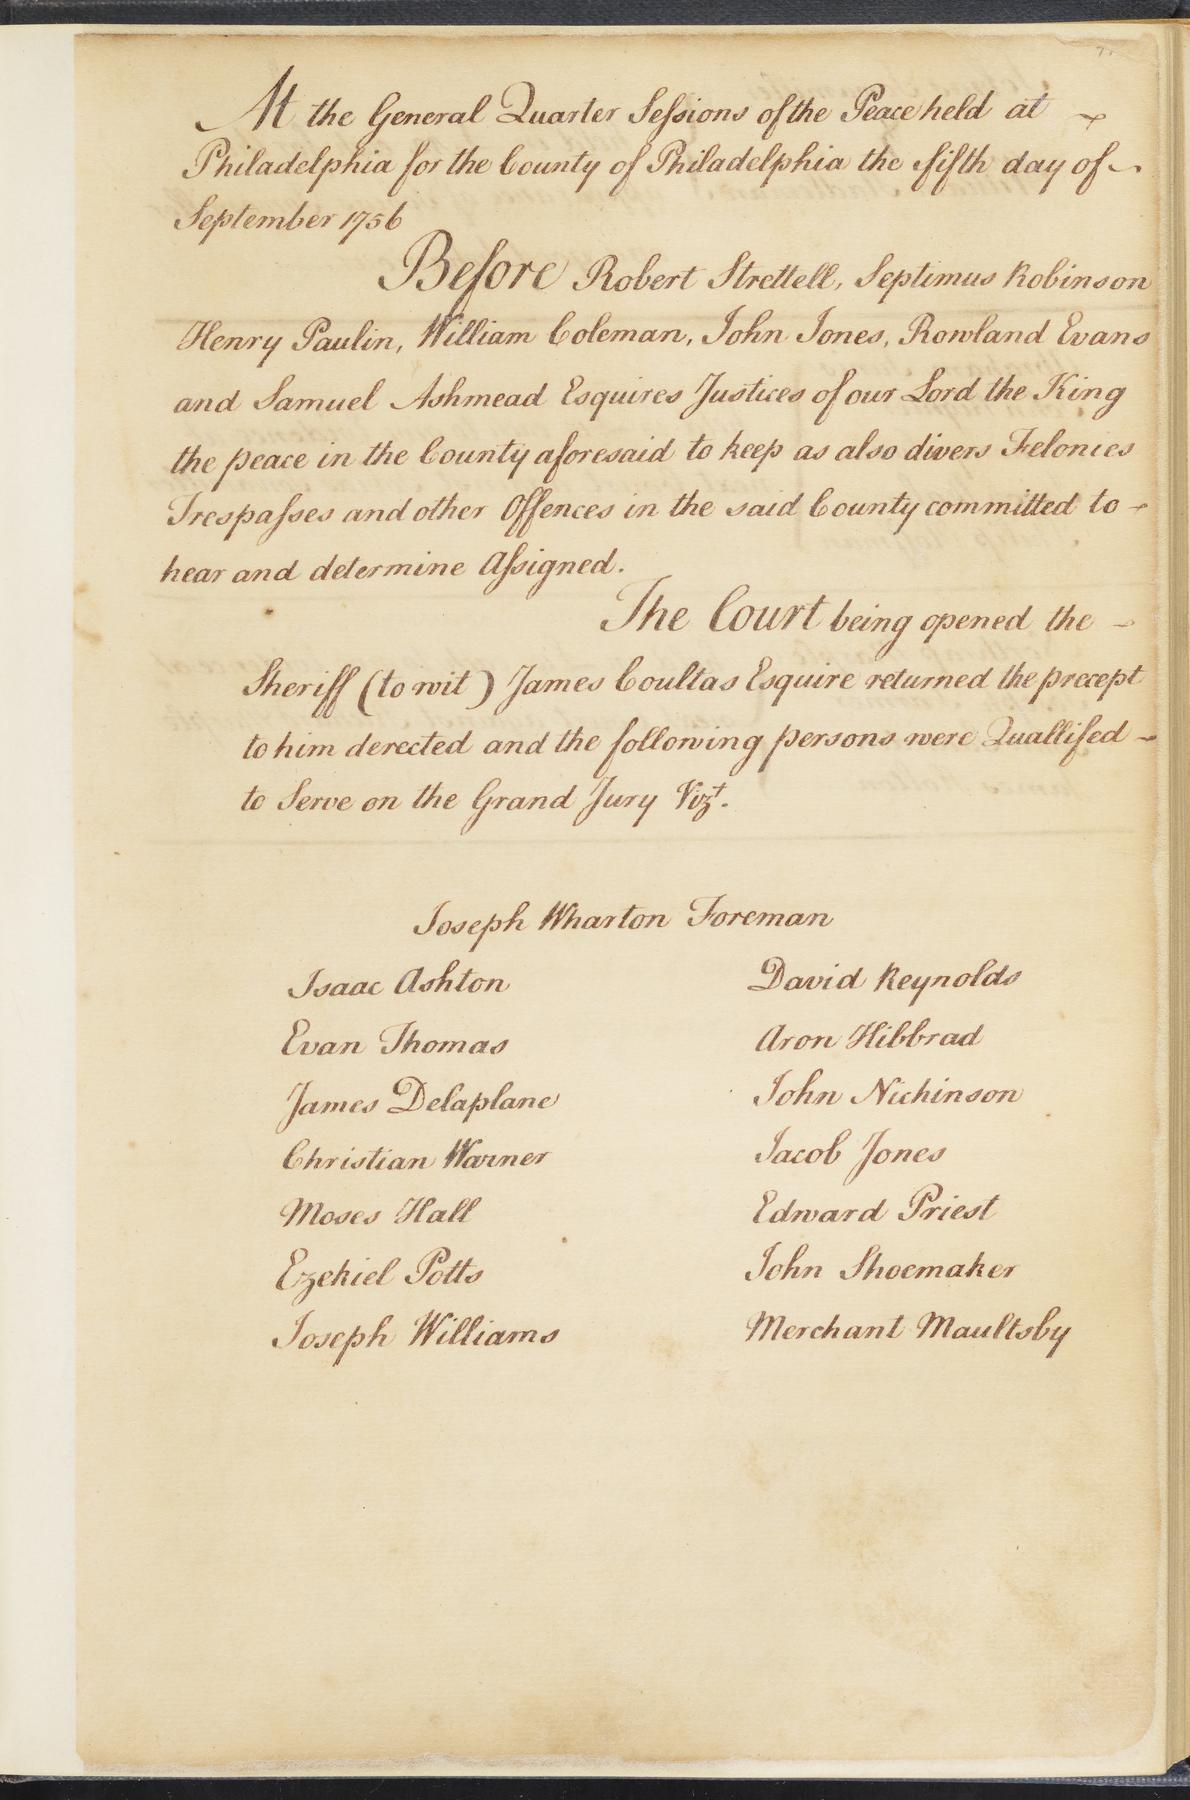 7.
At the General Quarter Seſsions of the Peace held at ~
Philadelphia for the County of Philadelphia the fifth day of ~
September 1756
Before Robert Strettell, Septimus Robinson
Henry Paulin, William Coleman, John Jones, Rowland Evans
and Samuel Ashmead Esquires Justices of our Lord the King
the peace in the County aforesaid to keep as also divers Felonies
Trespaſses and other Offences in the said County committed to -
hear and determine Aſsigned.
The Court being opened the -
Sheriff (to wit) James Coultas Esquire returned the precept
to him derected and the following persons were Quallifed -
to Serve on the Grand Jury Vizt.
Joseph Wharton Foreman
Isaac Ashton
Evan Thomas
James Delaplane
Christian Warner
Moses Hall
Ezekiel Potts
Joseph Williams
David Reynolds
Aron Hibbrad
John Nichinson
Jacob Jones
Edward Priest
John Shoemaker
Merchant Maultsby